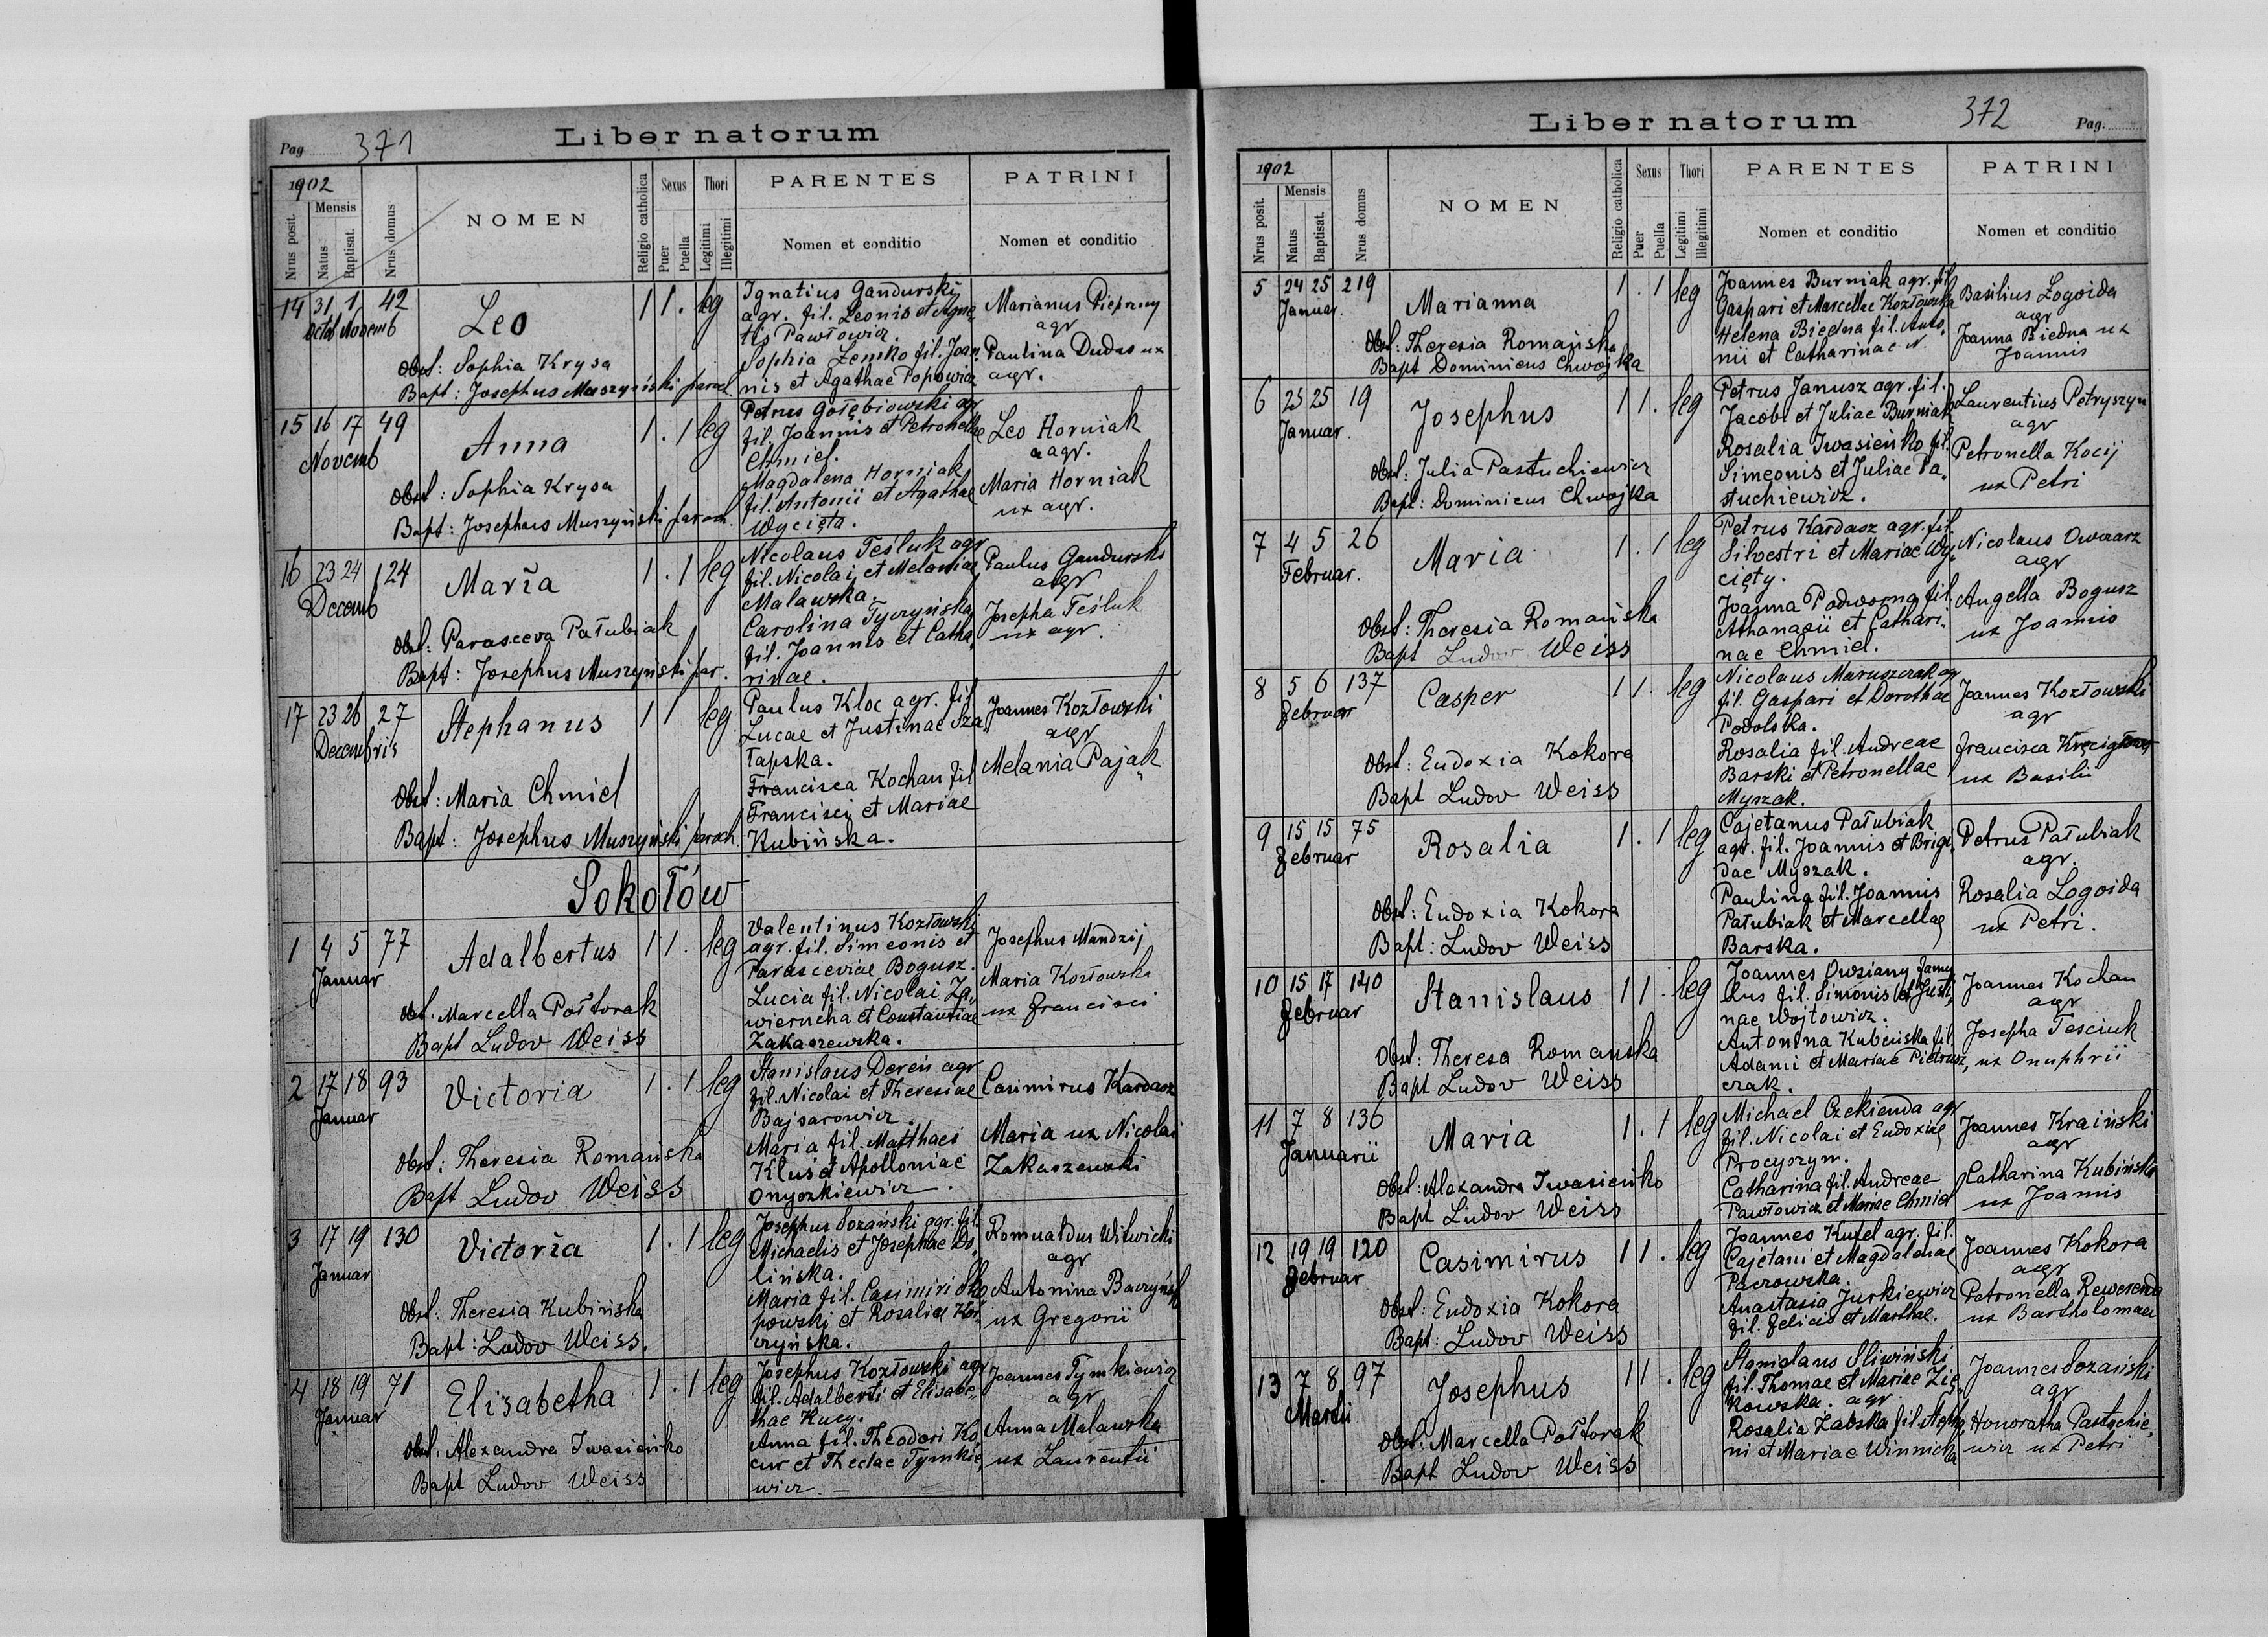 Pag. 371
Liber natorum
1902
Nrus posit.
Mensis
Natus
Baptisat.
Nrus domus
NOMEN
Religio catholica
Sexus
Puer
Puella
Thori
Legitimi
Illegitimi
PARENTES
Nomen et conditio
PATRINI
Nomen et conditio
14 31 1 42
Octob Novemb
Leo
1 1 . leg
Obst: Sophia Krysa
Bapt: Josephus Muszyński paroch.
Ignatius Gandurski
agr. fil. Leonis et Agne,
tis Pawłowicz.
Sophia Zemko fil. Joan,
nis et Agathae Popowicz
Marianus Pieprzny
agr
Paulina Dudas ux
agr.
15 16 17 49
Novemb
Anna
1 . 1 leg
Obst: Sophia Krysa
Bapt: Josephus Muszyński paroch.
Petrus Gołębiowski agr
fil. Joannis et Petronellae
Chmiel.
Magdalena Horniak
fil. Antonii et Agathae
Wycięta.
Leo Horniak
agr.
Maria Horniak
ux agr.
16 23 24 124
Decemb
Maria
1 . 1 leg
Obst: Parasceva Patubiak
Bapt: Josephus Muszyński par.
Nicolaus Teśluk agr
fil. Nicolai et Melaniae
Malawska.
Carolina Tyczyńska
fil. Joannis et Catha,
rinae.
Paulus Gandurski
agr
Josepha Teśluk
ux agr.
17 23 26 27
Decembris
Stephanus
1 1 leg
Obst: Maria Chmiel
Bapt: Josephus Muszyński paroch.
Paulus Kloc agr. fil
Lucae et Justinae Sza,
łapska.
Francisca Kochan fil
Francisci et Mariae
Kubińska.
Joannes Kozłowski
agr
Melania Pająk
Sokołów
1 4 5 77
Januar
Adalbertus
1 1 . leg
Obst. Marcella Połtorak
Bapt Ludov Weiss
Valentinus Kozłowski
agr. fil. Simeonis et
Parasceviae Bogusz.
Lucia fil. Nicolai Za,
wierucha et Constantiae
Zakaszewska.
Josephus Mandzij
Maria Kozłowska
ux Francisci
2 17 18 93
Januar
Victoria
1 . 1 leg
Obst: Theresia Romańska
Bapt Ludov Weiss
Stanislaus Dereń agr
fil. Nicolai et Theresiae
Bajsarowicz.
Maria fil. Matthaei
Kluś et Apolloniae
Onyszkiewicz.
Casimirus Kardasz
Maria ux Nicolai
Zakaszewski
3 17 19 130
Januar
Victoria
1 . 1 leg
Obst: Theresia Kubińska
Bapt: Ludov Weiss.
Josephus Sozański agr. fil.
Michaelis et Josephae Do,
lińska.
Maria fil. Casimiri Sko
powski et Rosaliae Kor,
czyńska.
Romualdus Witwicki
agr
Antonina Baczyńsk
ux Gregorii
4 18 19 71
Januar
Elisabetha
1 . 1 leg
Obst: Alexandra Iwasieńko
Bapt Ludov Weiss
Josephus Kozłowski agr
fil. Adalberti et Elisabe,
thae Kucy.
Anna fil. Theodori Ko,
cur et Theclae Tymkie,
wicz. —
Joannes Tymkiewicz
agr
Anna Malawska
ux Laurentii
Liber natorum
372 Pag.
1902
Nrus posit.
Mensis
Natus
Baptisat.
Nrus domus
NOMEN
Religio catholica
Sexus
Puer
Puella
Thori
Legitimi
Illegitimi
PARENTES
Nomen et conditio
PATRINI
Nomen et conditio
5 24 25 219
Januar.
Marianna
1 . 1 leg
Obst: Theresia Romańska
Bapt Dominicus Chwojka
Joannes Burniak agr. fil
Gaspari et Marcellae Kozłowska
Helena Biedna fil. Anto,
nii et Catharinae N.
Basilius Łogoida
agr
Joanna Biedna ux
Joannis
6 25 25 19
Januar.
Josephus
1 1 . leg
Obst: Julia Pastuchiewicz
Bapt: Dominicus Chwojka
Petrus Janusz agr. fil.
Jacobi et Juliae Burniak
Rosalia Iwasieńko fil.
Simeonis et Juliae Pa,
stuchiewicz.
Laurentius Petryszyn
agr
Petronella Kocij
ux Petri
7 4 5 26
Februar.
Maria
1 . 1 leg
Obst: Theresia Romańska
Bapt Ludov Weiss
Petrus Kardasz agr. fil
Silvestri et Mariae Wy,
cięty.
Joanna Podworna fil.
Athanasii et Cathari,
nae Chmiel.
Nicolaus Owczarz
agr
Angella Bogusz
ux Joannis
8 5 6 137
Februar
Casper
1 1 . leg
Obst: Eudoxia Kokora
Bapt Ludov Weiss
Nicolaus Maruszczak agr
fil. Gaspari et Dorothae
Podolska.
Rosalia fil. Andreae
Barski et Petronellae
Myszak.
Joannes Kozłowski
agr
Francisca
ux Basilii
9 15 15 75
Februar
Rosalia
1 . 1 leg
Obst: Eudoxia Kokora
Bapt: Ludov Weiss
Cajetanus Patubiak
agr. fil. Joannis et Brigi,
dae Myszak.
Paulina fil. Joannis
Patubiak et Marcellae
Barska.
Petrus Patubiak
agr.
Rosalia Logoida
ux Petri.
10 15 17 140
Februar
Stanislaus
1 1 . leg
Obst: Theresa Romańska
Bapt Ludov Weiss
Joannes Owsiany famu
lus fil. Simonis et Justi,
nae Wojtowicz.
Antonina Kubińska fil.
Adami et Mariae Pietrusz,
czak.
Joannes Kochan
agr
Josepha Tesciuk
ux Onuphrii
11 7 8 136
Januarii
Maria
1 . 1 leg
Obst: Alexandra Iwasieńko
Bapt Ludov Weiss
Michael Czekienda agr
fil. Nicolai et Eudoxiae
Procyszyn.
Catharina fil. Andreae
Pawłowicz et Mariae Chmiel
Joannes Kraiński
agr
Catharina Kubińska
ux Joannis
12 19 19 120
Februar
Casimirus
1 1 . leg
Obst: Eudoxia Kokora
Bapt: Ludov Weiss
Joannes Kufel agr. fil.
Cajetani et Magdalenae
Paczowska.
Anastasia Jurkiewicz
fil. Felicis et Marthae.
Joannes Kokora
agr
Petronella Rewerenda
ux Bartholomaei
13 7 8 97
Martii
Josephus
1 1 . leg
Obst: Marcella Połtorak
Bapt Ludov Weiss
Stanislaus Sliwiński
fil. Thomae et Mariae Zię,
kowska. agr
Rosalia Zabska fil. Stepha,
ni et Mariae Winnicka
Joannes Sozański
agr
Honoratha Pastuchie,
wicz ux Petri